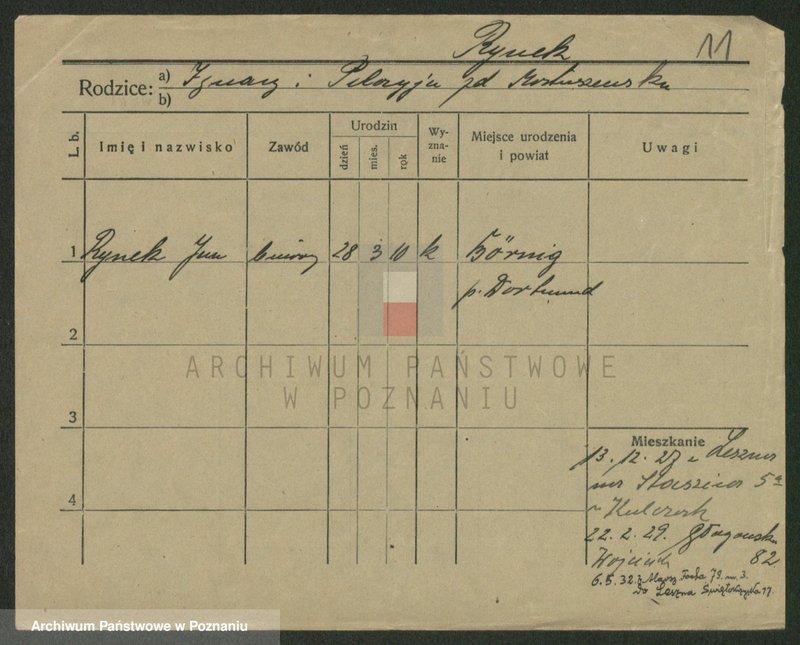 Rynek
11
Rodzice: a) Ignacy i Pelagja zd
b)
L. b. Imię i nazwisko Zawód Urodzin dzień mies. rok Wy-zna-nie Miejsce urodzenia i powiat Uwagi
1 Rynek Jan 28 3 10 k Börnig
p. Dortmund
2
ARCHIWUM PAŃSTWOWE
W POZNANIU
3
Mieszkanie
13. 12. 27 z Leszna
Staszica 5a
22. 2. 29. Głogowska
82
6.5.32. 79. m. 3.
do Leszna 17.
4
Archiwum Państwowe w Poznaniu